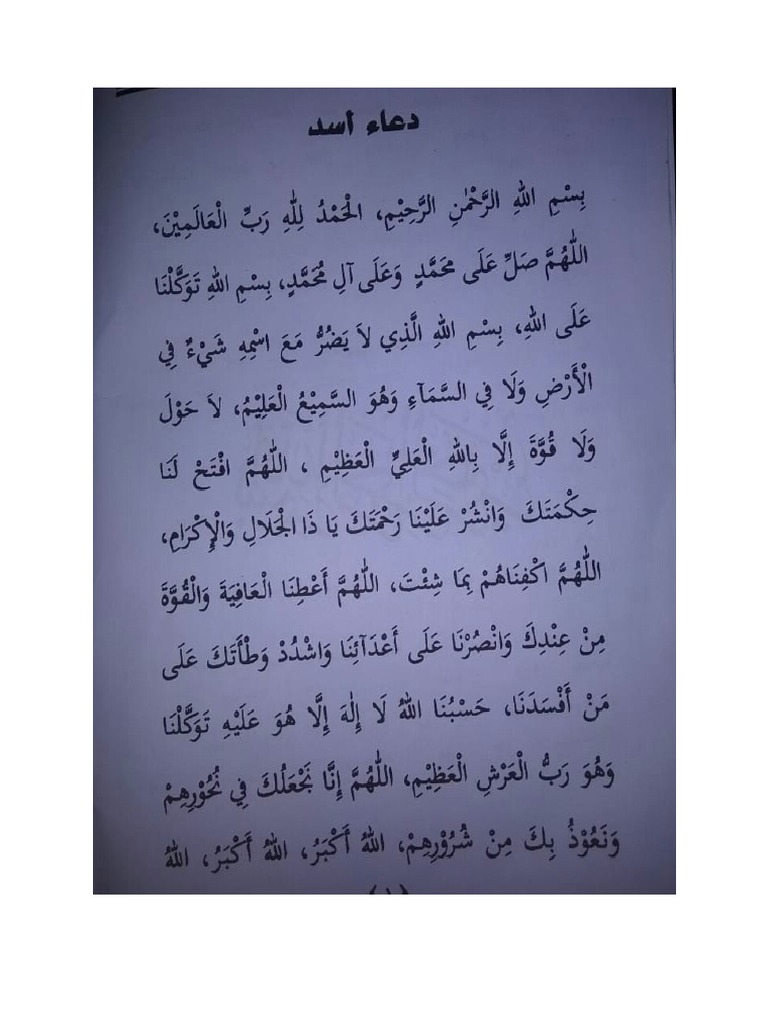 دعاء أسد
بِسْمِ اللهِ الرَّحْمٰنِ الرَّحِيْمِ، الْحَمْدُ لِلّٰهِ رَبِّ الْعَالَمِيْنَ،
اَللّٰهُمَّ صَلِّ عَلَى مُحَمَّدٍ وَعَلَى آلِ مُحَمَّدٍ، بِسْمِ اللهِ تَوَكَّلْنَا
عَلَى اللهِ، بِسْمِ اللهِ الَّذِي لاَ يَضُرُّ مَعَ اسْمِهِ شَيْءٌ فِي
الْأَرْضِ وَلَا فِي السَّمَآءِ وَهُوَ السَّمِيْعُ الْعَلِيْمُ، لاَ حَوْلَ
وَلَا قُوَّةَ إِلَّا بِاللهِ الْعَلِيِّ الْعَظِيْمِ ، اَللّٰهُمَّ افْتَحْ لَنَا
حِكْمَتَكَ وَانْشُرْ عَلَيْنَا رَحْمَتَكَ يَا ذَا الْجَلَالِ وَالْإِكْرَامِ،
اَللّٰهُمَّ اكْفِنَاهُمْ بِمَا شِئْتَ، اَللّٰهُمَّ أَعْطِنَا الْعَافِيَةَ وَالْقُوَّةَ
مِنْ عِنْدِكَ وَانْصُرْنَا عَلَى أَعْدَآئِنَا وَاشْدُدْ وَطْأَتَكَ عَلَى
مَنْ أَفْسَدَنَا، حَسْبُنَا اللهُ لَا إِلٰهَ إِلَّا هُوَ عَلَيْهِ تَوَكَّلْنَا
وَهُوَ رَبُّ الْعَرْشِ الْعَظِيْمِ، اَللّٰهُمَّ إِنَّا نَجْعَلُكَ فِي نُحُوْرِهِمْ
وَنَعُوْذُ بِكَ مِنْ شُرُوْرِهِمْ، اَللهُ أَكْبَرُ، اَللهُ أَكْبَرُ، اَللهُ